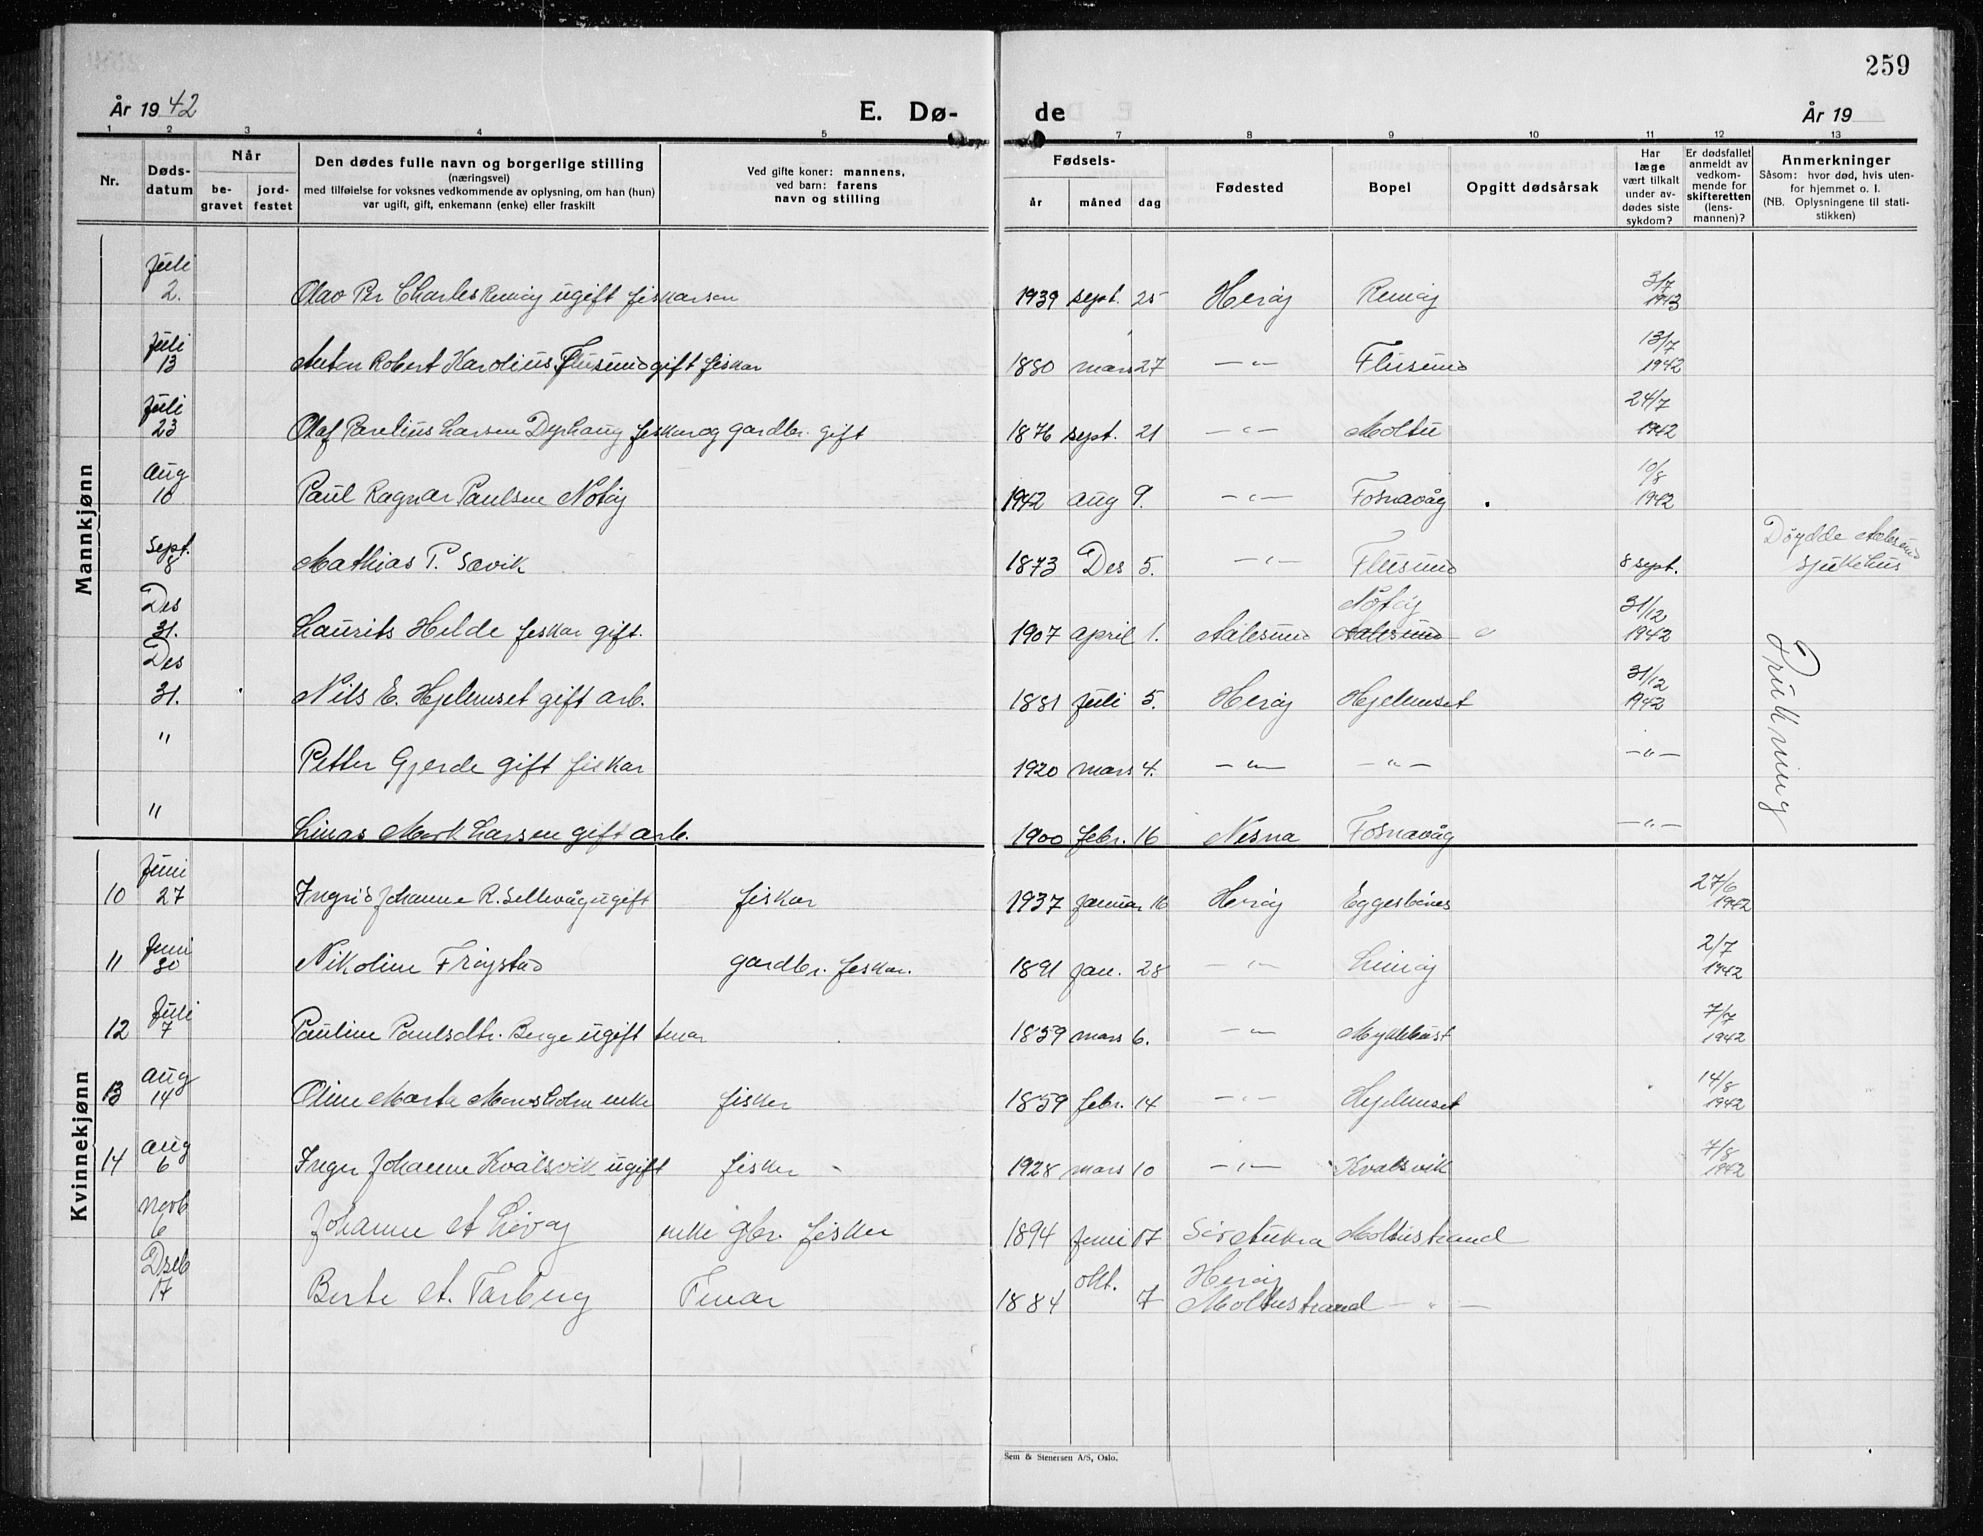 259
År 1942 E. Dø- de År 19
1 2 3 4 5 7 8 9 10 11 12 13
Nr. Dødsdatum Når begravet jordfestet
Den dødes fulle navn og borgerlige stilling
(næringsvei)
med tilføielse for voksnes vedkommende av oplysning, om han (hun)
var ugift, gift, enkemann (enke) eller fraskilt
Ved gifte koner: mannens,
ved barn: farens
navn og stilling
Fødsels-
år måned dag
Fødested
Bopel
Opgitt dødsårsak
Har læge vært tilkalt under avdødes siste sykdom?
Er dødsfallet anmeldt av vedkommende for skifteretten (lensmannen)?
Anmerkninger
Såsom: hvor død, hvis utenfor hjemmet o. l.
(NB. Oplysningene til statistikken)
Mannkjønn
Juli 2. Olav Per Charles Remøy ugift fiskarson 1939 sept. 25 Herøy Remøy 3/7 1943
Juli 13 Anton Robert Karolius Flusund gift fiskar 1880 mars 27 —„— Flusund 13/7 1942
Juli 23 Olaf Parelius Larsen Dyrhaug fiskar og gardbr. gift 1876 sept. 21 —„— Moltu 24/7 1942
Aug 10 Paul Ragnar Paulsen Notøy 1942 aug 9. —„— Fosnavåg 10/8 1942
Sept. 8 Mathias P. Sævik 1873 Des 5. —„— Flusund 8 sept. Døydde Aalesund sjukehus
Des 31. Laurits Helde fiskar gift. 1907 april 1. Aalesund Nøtøy Aalesund 31/12 1942
Des 31. Nils E. Hjelmeset gift arb. 1881 Juli 5. Herøy Hjelmeset 31/12 1942 Drukning
" Petter Gjerde gift fiskar 1920 mars 4. —„— —„— —„—
" Linas Mork Larsen gift arb. 1900 febr. 16 Nesna Fosnavåg —„—
Kvinnekjønn
10 Juni 27 Ingrid Johanne R. Sellevåg ugift fiskar 1937 Januar 16 Herøy Eggesbønes 27/6 1942
11 Juni 30 Nikoline Frøystad gardbr. fiskar. 1891 jan. 28 —„— Leinøy 2/7 1942
12 Juli 7 Pauline Paulsdtr. Berge ugift tenar 1859 mars 6. —„— Myklebust 7/7 1942
13 Aug 14 Oline Marta Monsholm enke fisker 1859 febr. 14 —„— Hjelmeset 14/8 1942
14 Aug 6 Inger Johanne Kvalsvik ugift fisker 1928 mars 10 —„— Kvalsvik 7/8 1942
Novb 6 Johanne A enke gbr. fisker 1894 Juni 17 Moltustrand
Dseb 17 Berte A. Tarberg Tenar 1884 okt. 7 Herøy Moltustrand —„—
Sem & Stenersen A/S, Oslo.